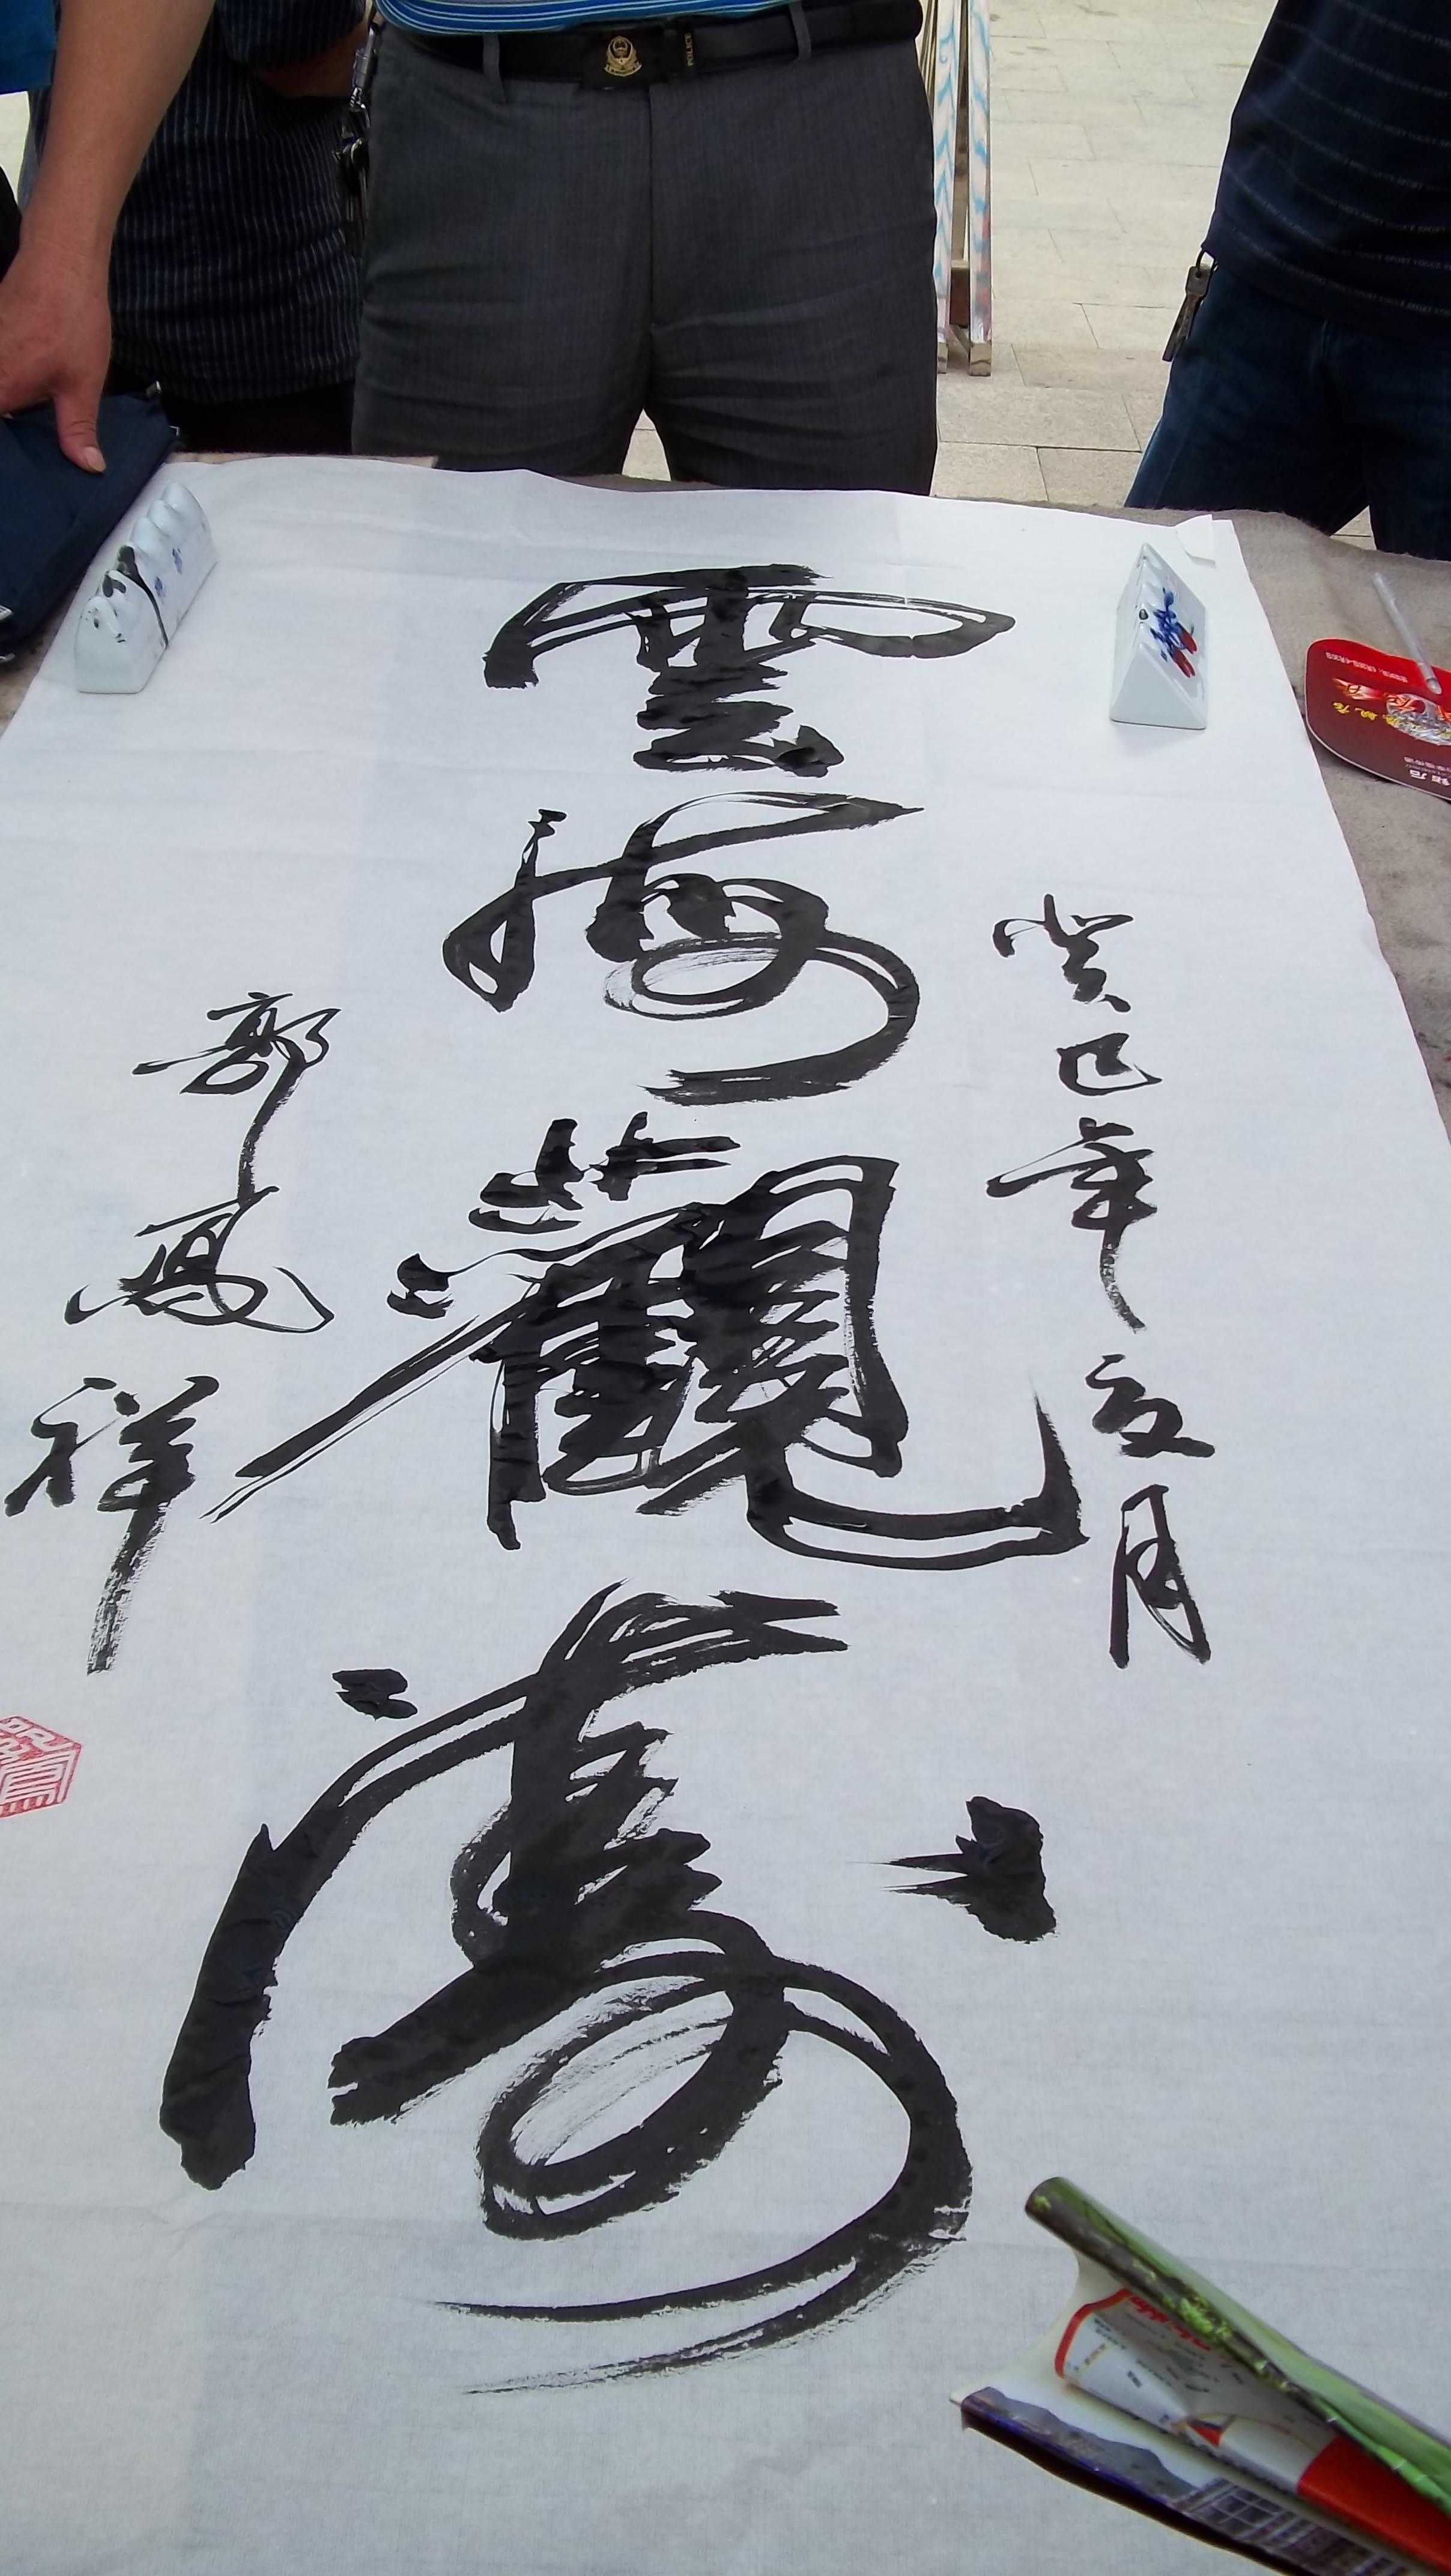 癸巳年夏月
雲海觀濤
郭鳳祥
POLICE